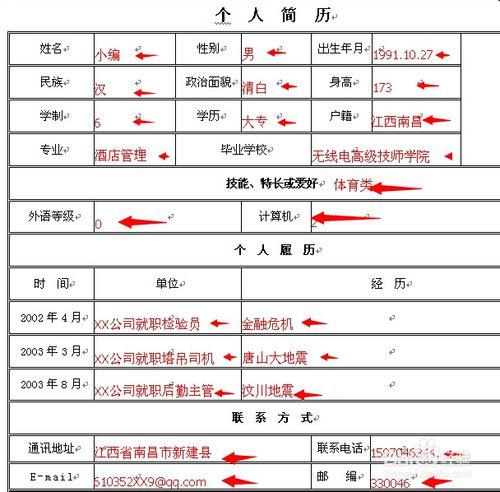 个 人 简 历
姓名 小编 性别 男 出生年月 1991.10.27
民族 汉 政治面貌 清白 身高 173
学制 6 学历 大专 户籍 江西南昌
专业 酒店管理 毕业学校 无线电高级技师学院
技能、特长或爱好 体育类
外语等级 0 计算机 2
个 人 履 历
时 间 单位 经 历
2002 年 4 月 XX公司就职检验员 金融危机
2003 年 3 月 XX公司就职塔吊司机 唐山大地震
2003 年 8 月 XX公司就职后勤主管 汶川地震
联 系 方 式
通讯地址 江西省南昌市新建县 联系电话
E-mail 610352XX9@qq.com 邮 编 330046